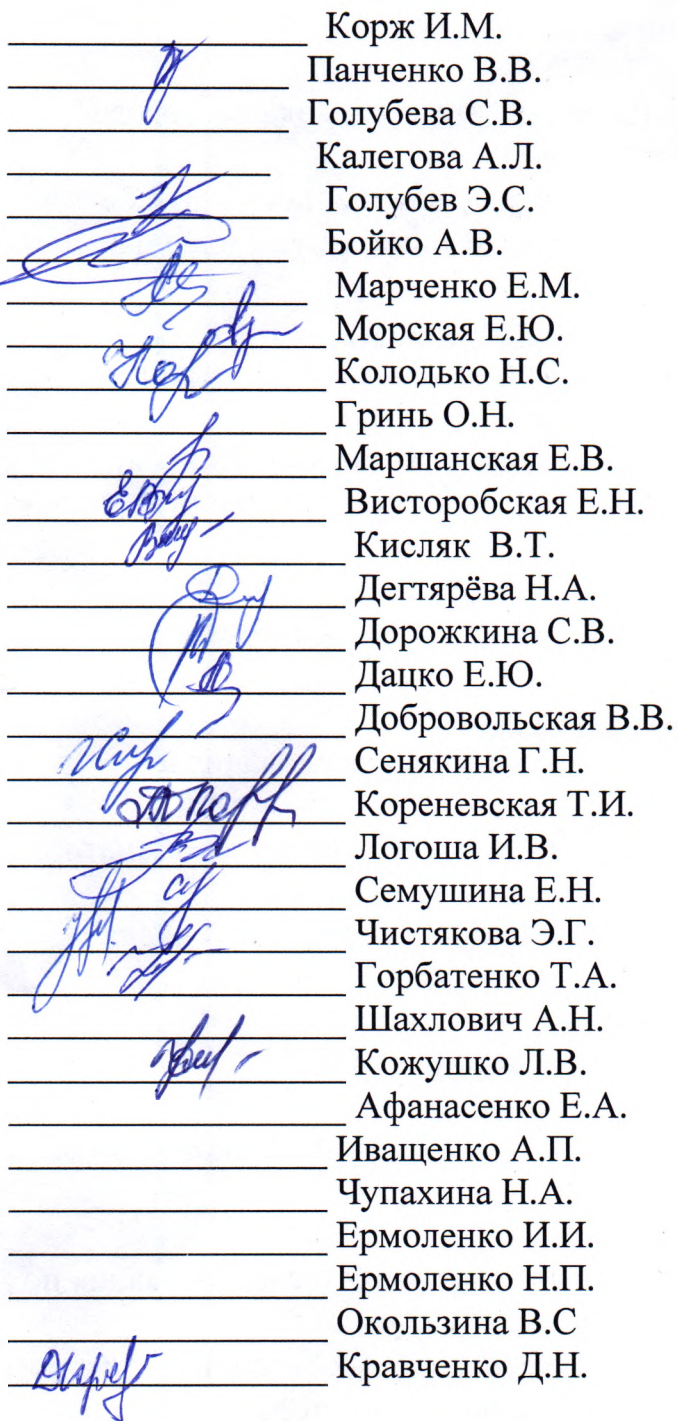 Корж И.М.
Панченко В.В.
Голубева С.В.
Калегова А.Л.
Голубев Э.С.
Бойко А.В.
Марченко Е.М.
Морская Е.Ю.
Колодько Н.С.
Гринь О.Н.
Маршанская Е.В.
Висторобская Е.Н.
Кисляк В.Т.
Дегтярёва Н.А.
Дорожкина С.В.
Дацко Е.Ю.
Добровольская В.В.
Сенякина Г.Н.
Кореневская Т.И.
Логоша И.В.
Семушина Е.Н.
Чистякова Э.Г.
Горбатенко Т.А.
Шахлович А.Н.
Кожушко Л.В.
Афанасенко Е.А.
Иващенко А.П.
Чупахина Н.А.
Ермоленко И.И.
Ермоленко Н.П.
Окользина В.С
Кравченко Д.Н.